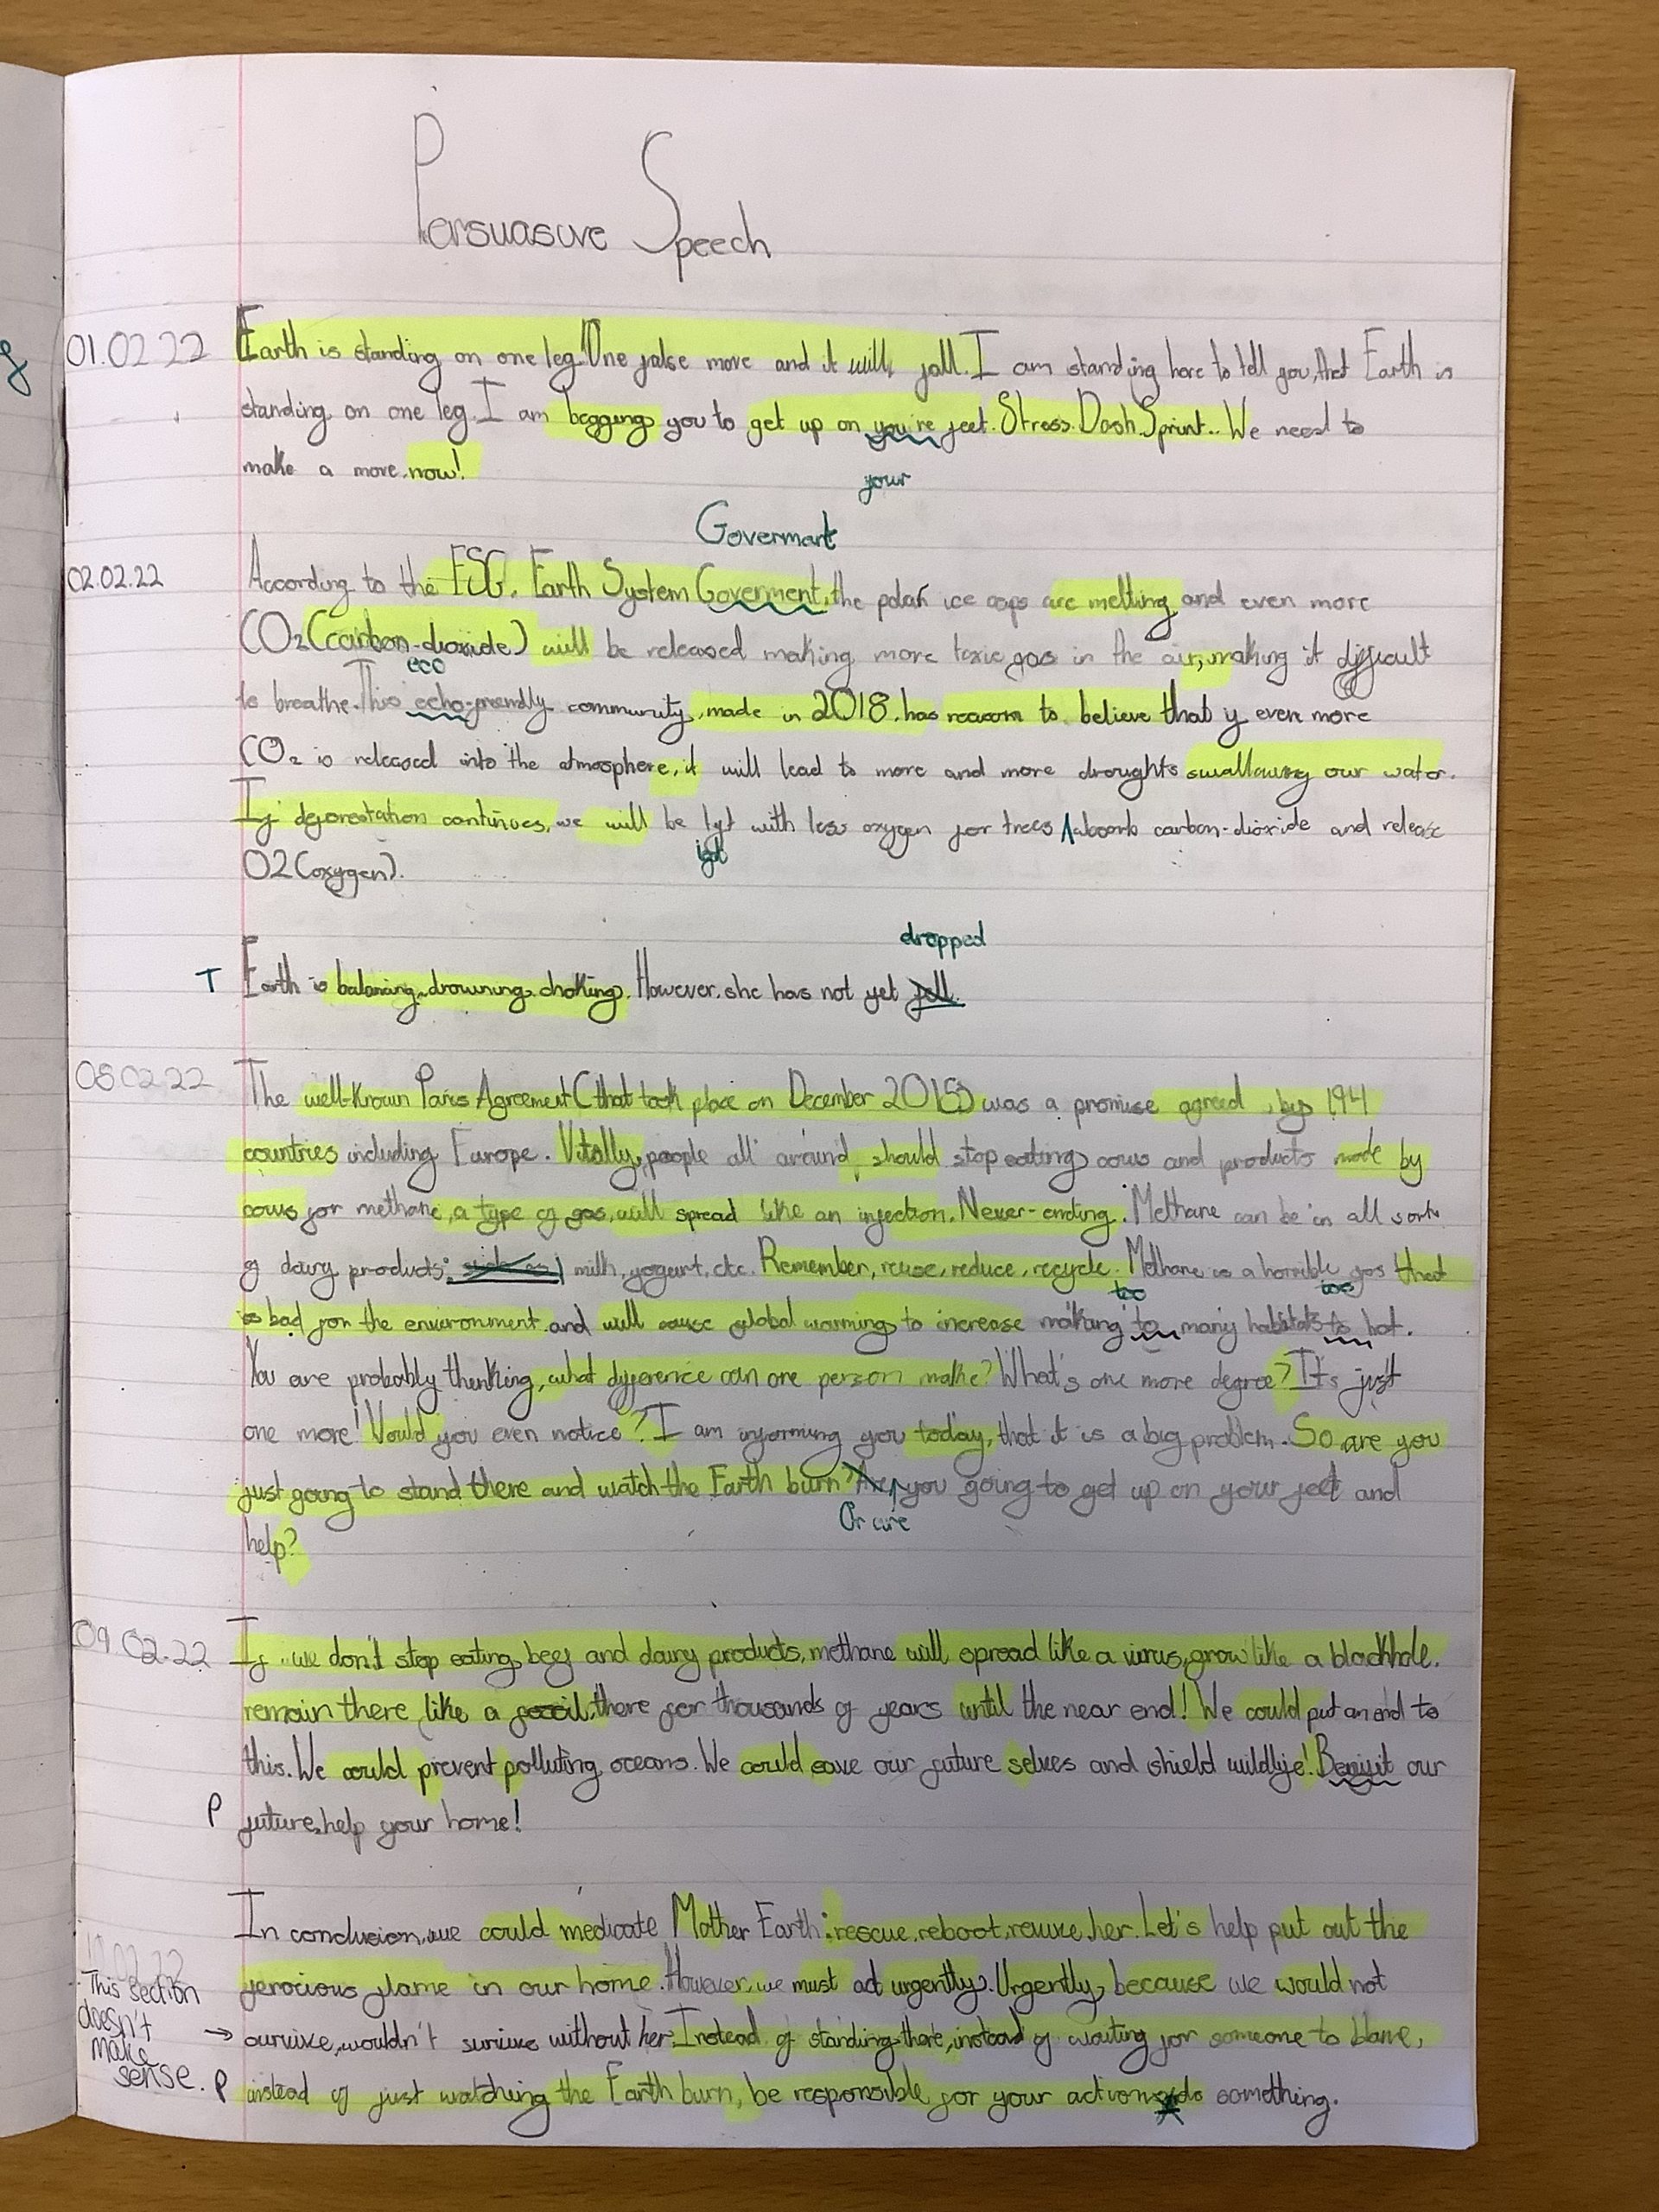 Persuasive Speech
01.02.22 Earth is standing on one leg! One false move and it will fall. I am standing here to tell you, that Earth is
standing on one leg. I am begging you to get up on you're feet. Stress. Dash. Sprint.. We need to
make a move, now!
your
Goverment
02.02.22 According to the ESG, Earth System Goverment, the polar ice caps are melting and even more
CO2 (carbon-dioxide) will be released making more toxic gas in the air, making it difficult
eco
to breathe. This echo-friendly community, made in 2018, has reason to believe that if even more
CO2 is released into the atmosphere, it will lead to more and more droughts swallowing our water.
If deforestation continues, we will be left with less oxygen for trees absorb carbon-dioxide and release
O2 (oxygen).
dropped
T Earth is balancing, drowning, choking. However, she has not yet fell.
08.02.22 The well-known Paris Agreement (that took place on December 2015) was a promise agreed by 194
countries including Europe. Vitally, people all around, should stop eating cows and products made by
cows for methane, a type of gas, will spread like an injection. Never-ending. Methane can be in all sorts
of dairy products: such as milk, yogurt, etc. Remember, reuse, reduce, recycle. Methane is a horrible gas that
too too
is bad for the environment and will cause global warming to increase making to many habitats to hot.
You are probably thinking, what difference can one person make? What's one more degree? It's just
one more! Would you even notice? I am informing you today, that it is a big problem. So are you
just going to stand there and watch the Earth burn? Are you going to get up on your feet and
Or are
help?
09.02.22 If we don't stop eating beef and dairy products, methane will spread like a virus, grow like a blackhole,
remain there like a fossil, there for thousands of years until the near end! We could put an end to
this. We could prevent polluting oceans. We could save our future selves and shield wildlife! Benifit our
P future, help your home!
In conclusion, we could medicate Mother Earth: rescue, reboot, revive her. Let's help put out the
This section ferocious flame in our home. However, we must act urgently. Urgently, because we would not
doesn't
make → survive, wouldn't survive without her. Instead of standing there, instead of waiting for someone to blame,
sense. P instead of just watching the Earth burn, be responsible for your actions do something.